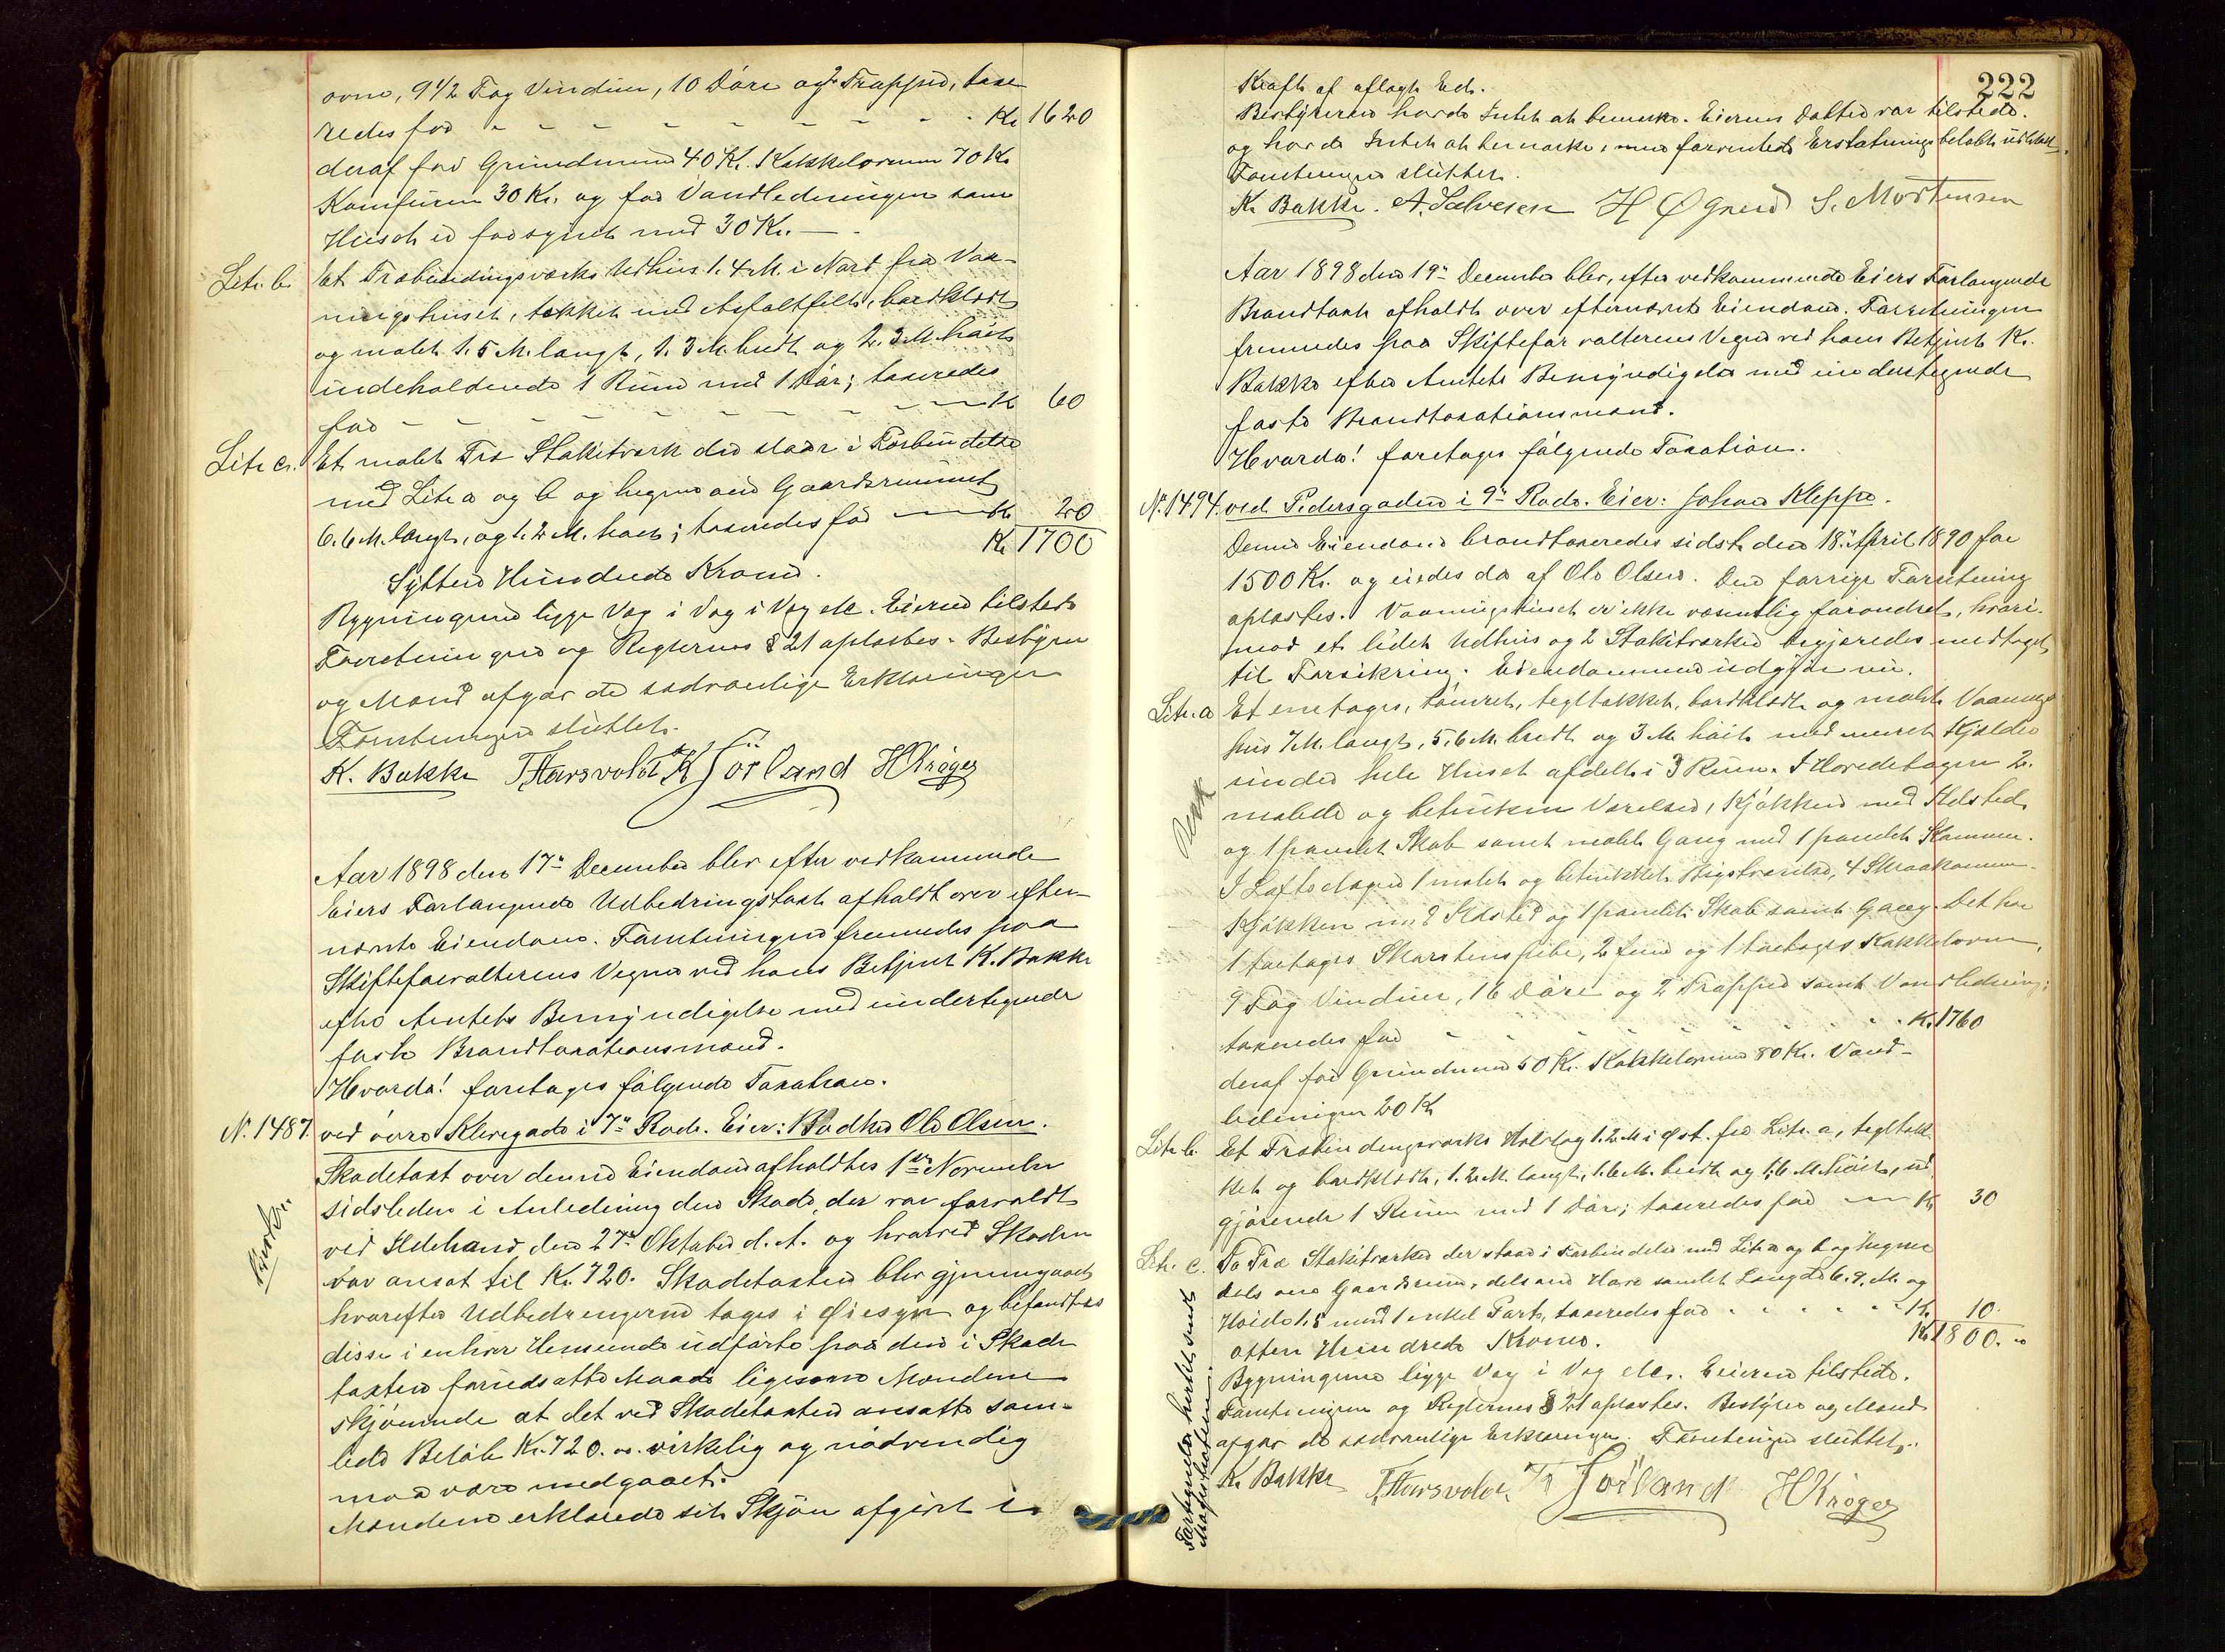 ovne, 9 1/2 Fag Vinduer, 10 Döre og 2 Trapper, taxe
redes for - - - - - - - - - Kr 1620
deraf for Grundmur 40 Kr. Kakkelovnen 70 Kr.
Komfuren 30 Kr. og for Vandledningen som
Huset er forsynet med 30 Kr. —
Litr. b. Et Træbindingsværks Udhus 1.4 M. i Nord fra Vaa-
ningshuset, tækket med Asfaltfilt, bordklædt
og malet 1.5 M. langt, 1.3 M. bredt og 2.3 M. höit
indeholdende 1 Rum med 1 Dör; taxeredes
for - - - - - - - Kr 60
Litr c. Et malet Træ Stakitværk der staar i Forbindelse
med Litr a og b og hegner om Gaardsrummet
6.6 M. langt, og 1.2 M. höit; taxeredes for — Kr 20
Kr 1700
Sytten Hundrede Kroner.
Bygningerne ligge Væg i Væg i Væg etc. Eieren tilstede
Forretningen og Reglernes § 21 oplæstes. Bestyrer
og Mænd afgav de sædvanlige Erklæringer
Forretningen sluttet.
K. Bakke T. Harsvoldt K Jörland H Kröger
Aar 1898 den 17de December blev efter vedkommende
Eiers Forlangende Udbedringstaxt afholdt over efter-
nævnte Eiendom. Forretningen fremmedes paa
Skifteforvalterens Vegne ved hans Betjent K. Bakke
efter Amtets Bemyndigelse med undertegnede
faste Brandtaxationsmænd.
Hvorda! foretoges fölgende Taxation.
N. 1487. ved övre Klevegade i 7de Rode. Eier: Bödker Ole Olsen.
Skadetaxt over denne Eiendom afholdtes 1ste November
sidstleden i Anledning den Skade, der var forvoldt
ved Ildebrand den 27de Oktober d. A. og hvorved Skaden
var ansat til Kr. 720. Skadetaxten blev gjennemgaaet
hvorefter Udbedringerne toges i Öiesyn og befandtes
disse i enhver Henseende udförte paa den i Skade
taxten forudsatte Maade ligesom Mændene
skjönnede at det ved Skadetaxten ansatte sam-
lede Belöb Kr. 720.00. virkelig og nödvendig
maa være medgaaet.
Mændene erklærede sit Skjön afgivet i
222
Kraft af aflagt Ed.
Bestyreren havde Intet at bemærke. Eierens Datter var tilstede.
og havde Intet at bemærke, men forventede Erstatningsbelöbet udbetalt.
Forretningen sluttet.
K. Bakke. A. Salvesen H Øgreid S. Mortensen
Aar 1898 den 19de December blev, efter vedkommende Eiers Forlangende
Brandtaxt afholdt over efternævnte Eiendom. Forretningen
fremmedes paa Skifteforvalterens Vegne ved hans Betjent K.
Bakke efter Amtets Bemyndigelse med undertegnede
faste Brandtaxationsmænd.
Hvorda! foretoges fölgende Taxation.
N. 1494. ved Pedersgaden i 9de Rode. Eier: Johan Kleppe.
Denne Eiendom brandtaxeredes sidst den 18de April 1890 for
1500 Kr. og eiedes da af Ole Olsen. Den forrige Forretning
oplæstes. Vaaningshuset er ikke væsentlig forandret, hvori-
mod et lidet Udhus og 2 Stakitværker begjæredes medtaget
til Forsikring. Eiendommen udgjör nu.
Litr. a Et enetages, tömret, tegltækket, bordklædt og malet Vaanings
hus 7 M. langt, 5.6 M. bredt og 3 M. höit med muret Kjælder
under hele Huset afdelt i 3 Rum. I Hovedetagen 2
malede og betrukne Værelser, Kjökken med Ildsted
og 1 panelet Skab samt malet Gang med 1 panelet Kammer.
I Loftsetagen 1 malet og betrukket Kvistværelse, 4 Skraakammer
Kjökken med Ildsted og 1 panelet Skab samt Gang. Det har
1 toetages Skorstenspibe, 2 een og 1 toetages Kakkelovne,
9 Fag Vinduer, 16 Döre og 2 Trapper samt Vandledning;
taxeredes for - - - - - - - Kr. 1760
deraf for Grundmur 50 Kr. Kakkelovne 80 Kr. Vand-
ledningen 20 Kr
Litr. b. Et Træbindingsværks 1.2 M. i Öst. fra Litr. a, tegltæk
ket og bordklædt, 1.2 M. langt, 1.6 M. bredt og 1.6 M. höit, ud
gjörende 1 Rum med 1 Dör; taxeredes for — Kr 30
Litr. c. To Træ Stakitværker der staar i Forbindelse med Litr a og b og hegner
dels om Gaardsrum, dels om Have samlet Længde 6.9. M. og
Höide 1.5 med 1 enkel Port, taxeredes for - - - - Kr 10.
Kr 1800.00
Atten Hundrede Kroner.
Bygningerne ligge Væg i Væg etc. Eieren tilstede.
Forretningen og Reglernes § 21 oplæstes. Bestyrer og Mænd
afgav de sædvanlige Erklæringer. Forretningen sluttet.
K. Bakke T. Harsvoldt K Jörland H Kröger